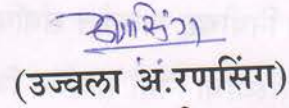 (उज्वला अं.रणसिंग)